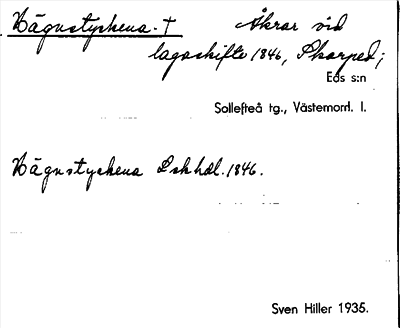 Vägnstyckena. † Åkrar vid
lagaskifte 1846, Skarped;
Eds s:n
Sollefteå tg., Västernorrl. l.
Vägnstyckena Lskhdl. 1846.
Sven Hiller 1935.